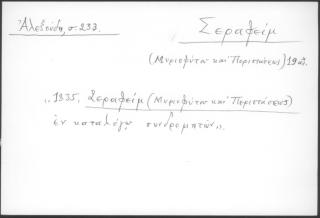 Ἀλεξούδη, σ. 233.
Σεραφείμ
(Μυριοφύτου καὶ Περιστάσεως)
„1835. Σεραφείμ (Μυριοφύτου καὶ Περιστάσεως)
ἐν καταλόγῳ συνδρομητῶν„.